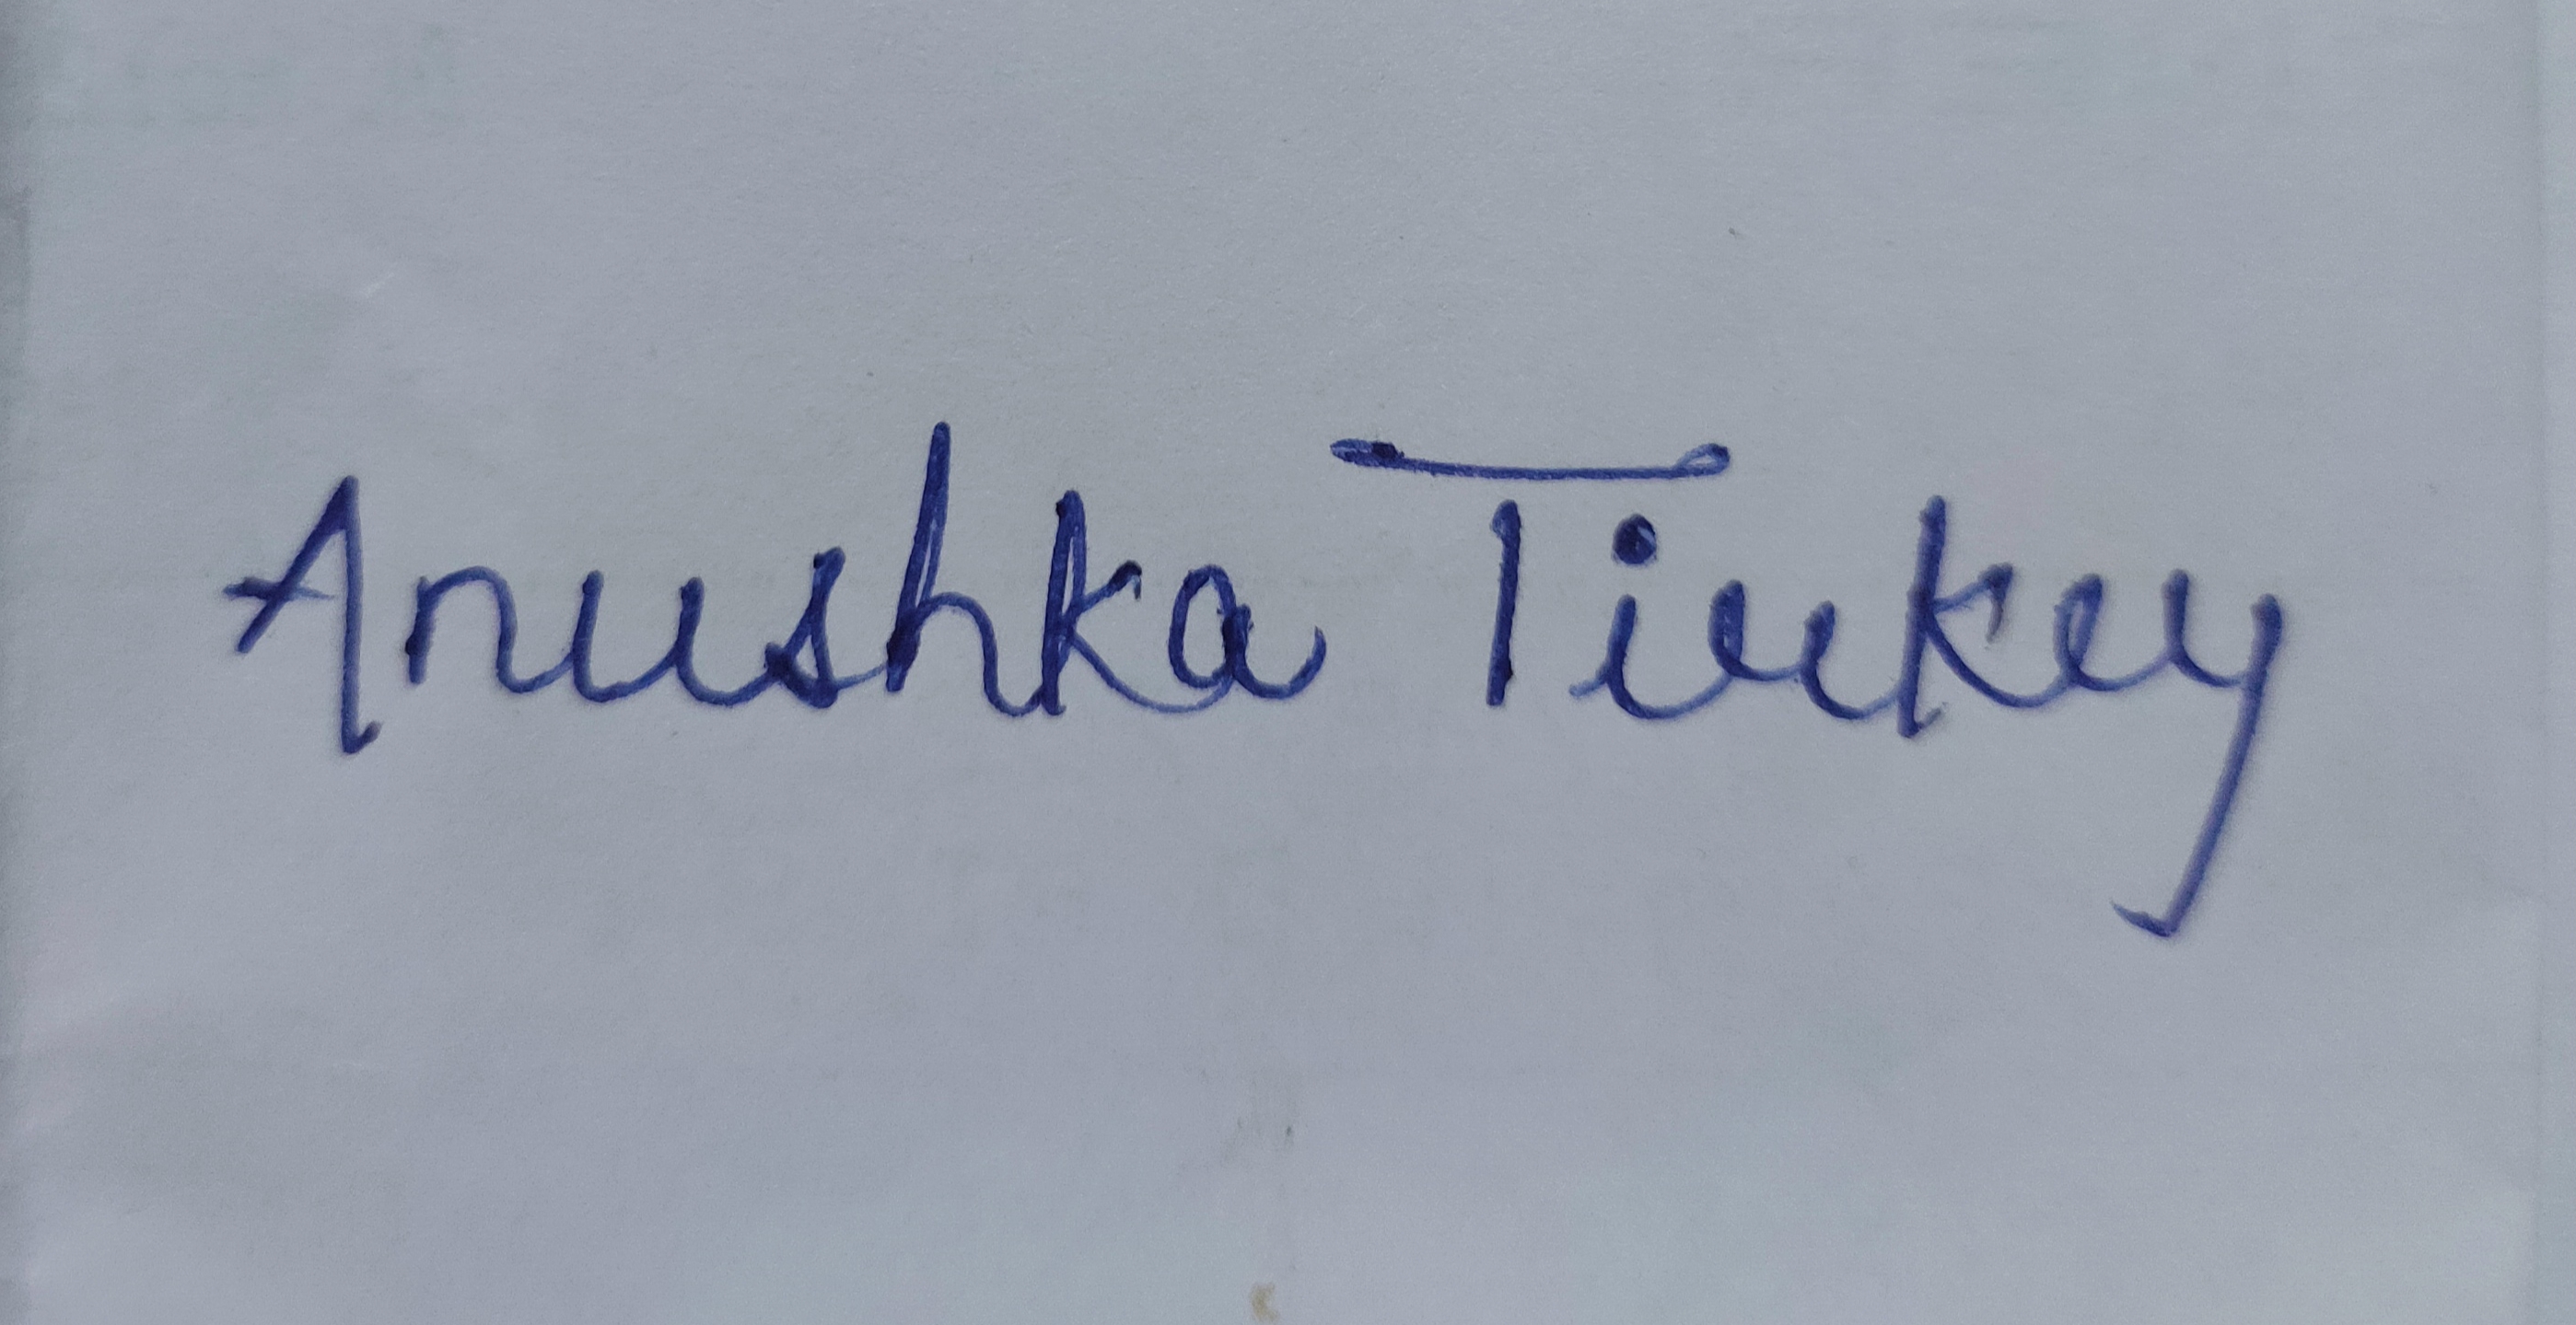 Anushka Tirkey